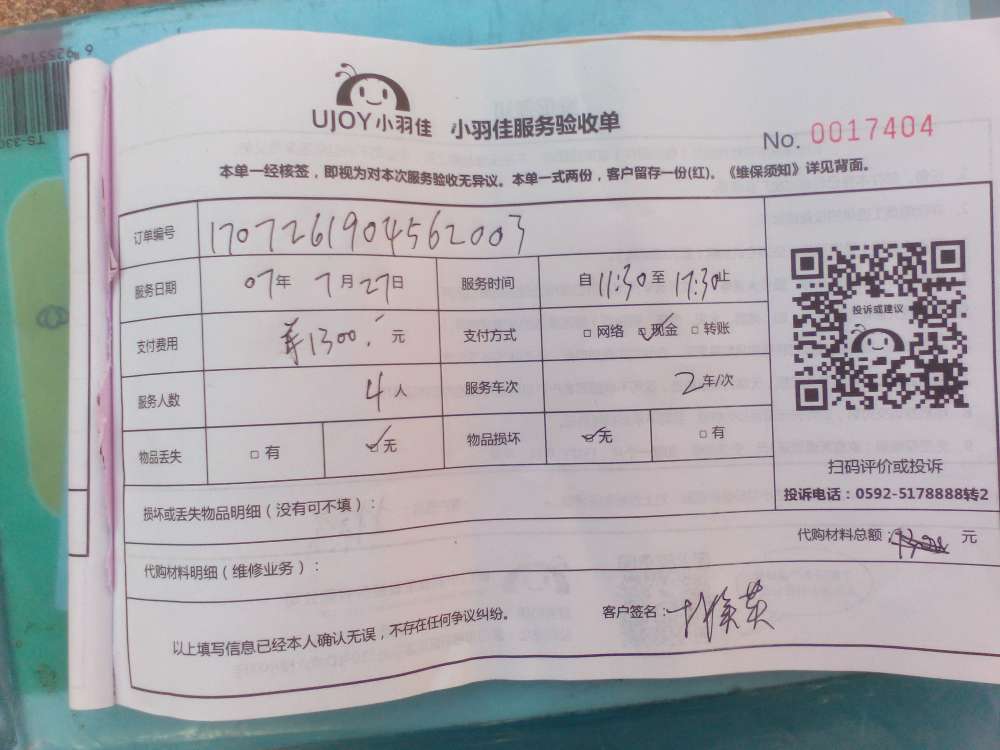 UJOY小羽佳 小羽佳服务验收单
No. 0017404
本单一经核签，即视为对本次服务验收无异议。本单一式两份，客户留存一份(红)。《维保须知》详见背面。
订单编号 1707261904562003
服务日期 07年 7月27日 服务时间 自11:30至17:30止
支付费用 ¥1300.- 元 支付方式 □网络 ☑现金 □转账
服务人数 4人 服务车次 2车/次
物品丢失 □有 ☑无 物品损坏 ☑无 □有
投诉或建议
扫码评价或投诉
投诉电话：0592-5178888转2
损坏或丢失物品明细（没有可不填）：
代购材料总额： 元
代购材料明细（维修业务）：
客户签名：
以上填写信息已经本人确认无误，不存在任何争议纠纷。